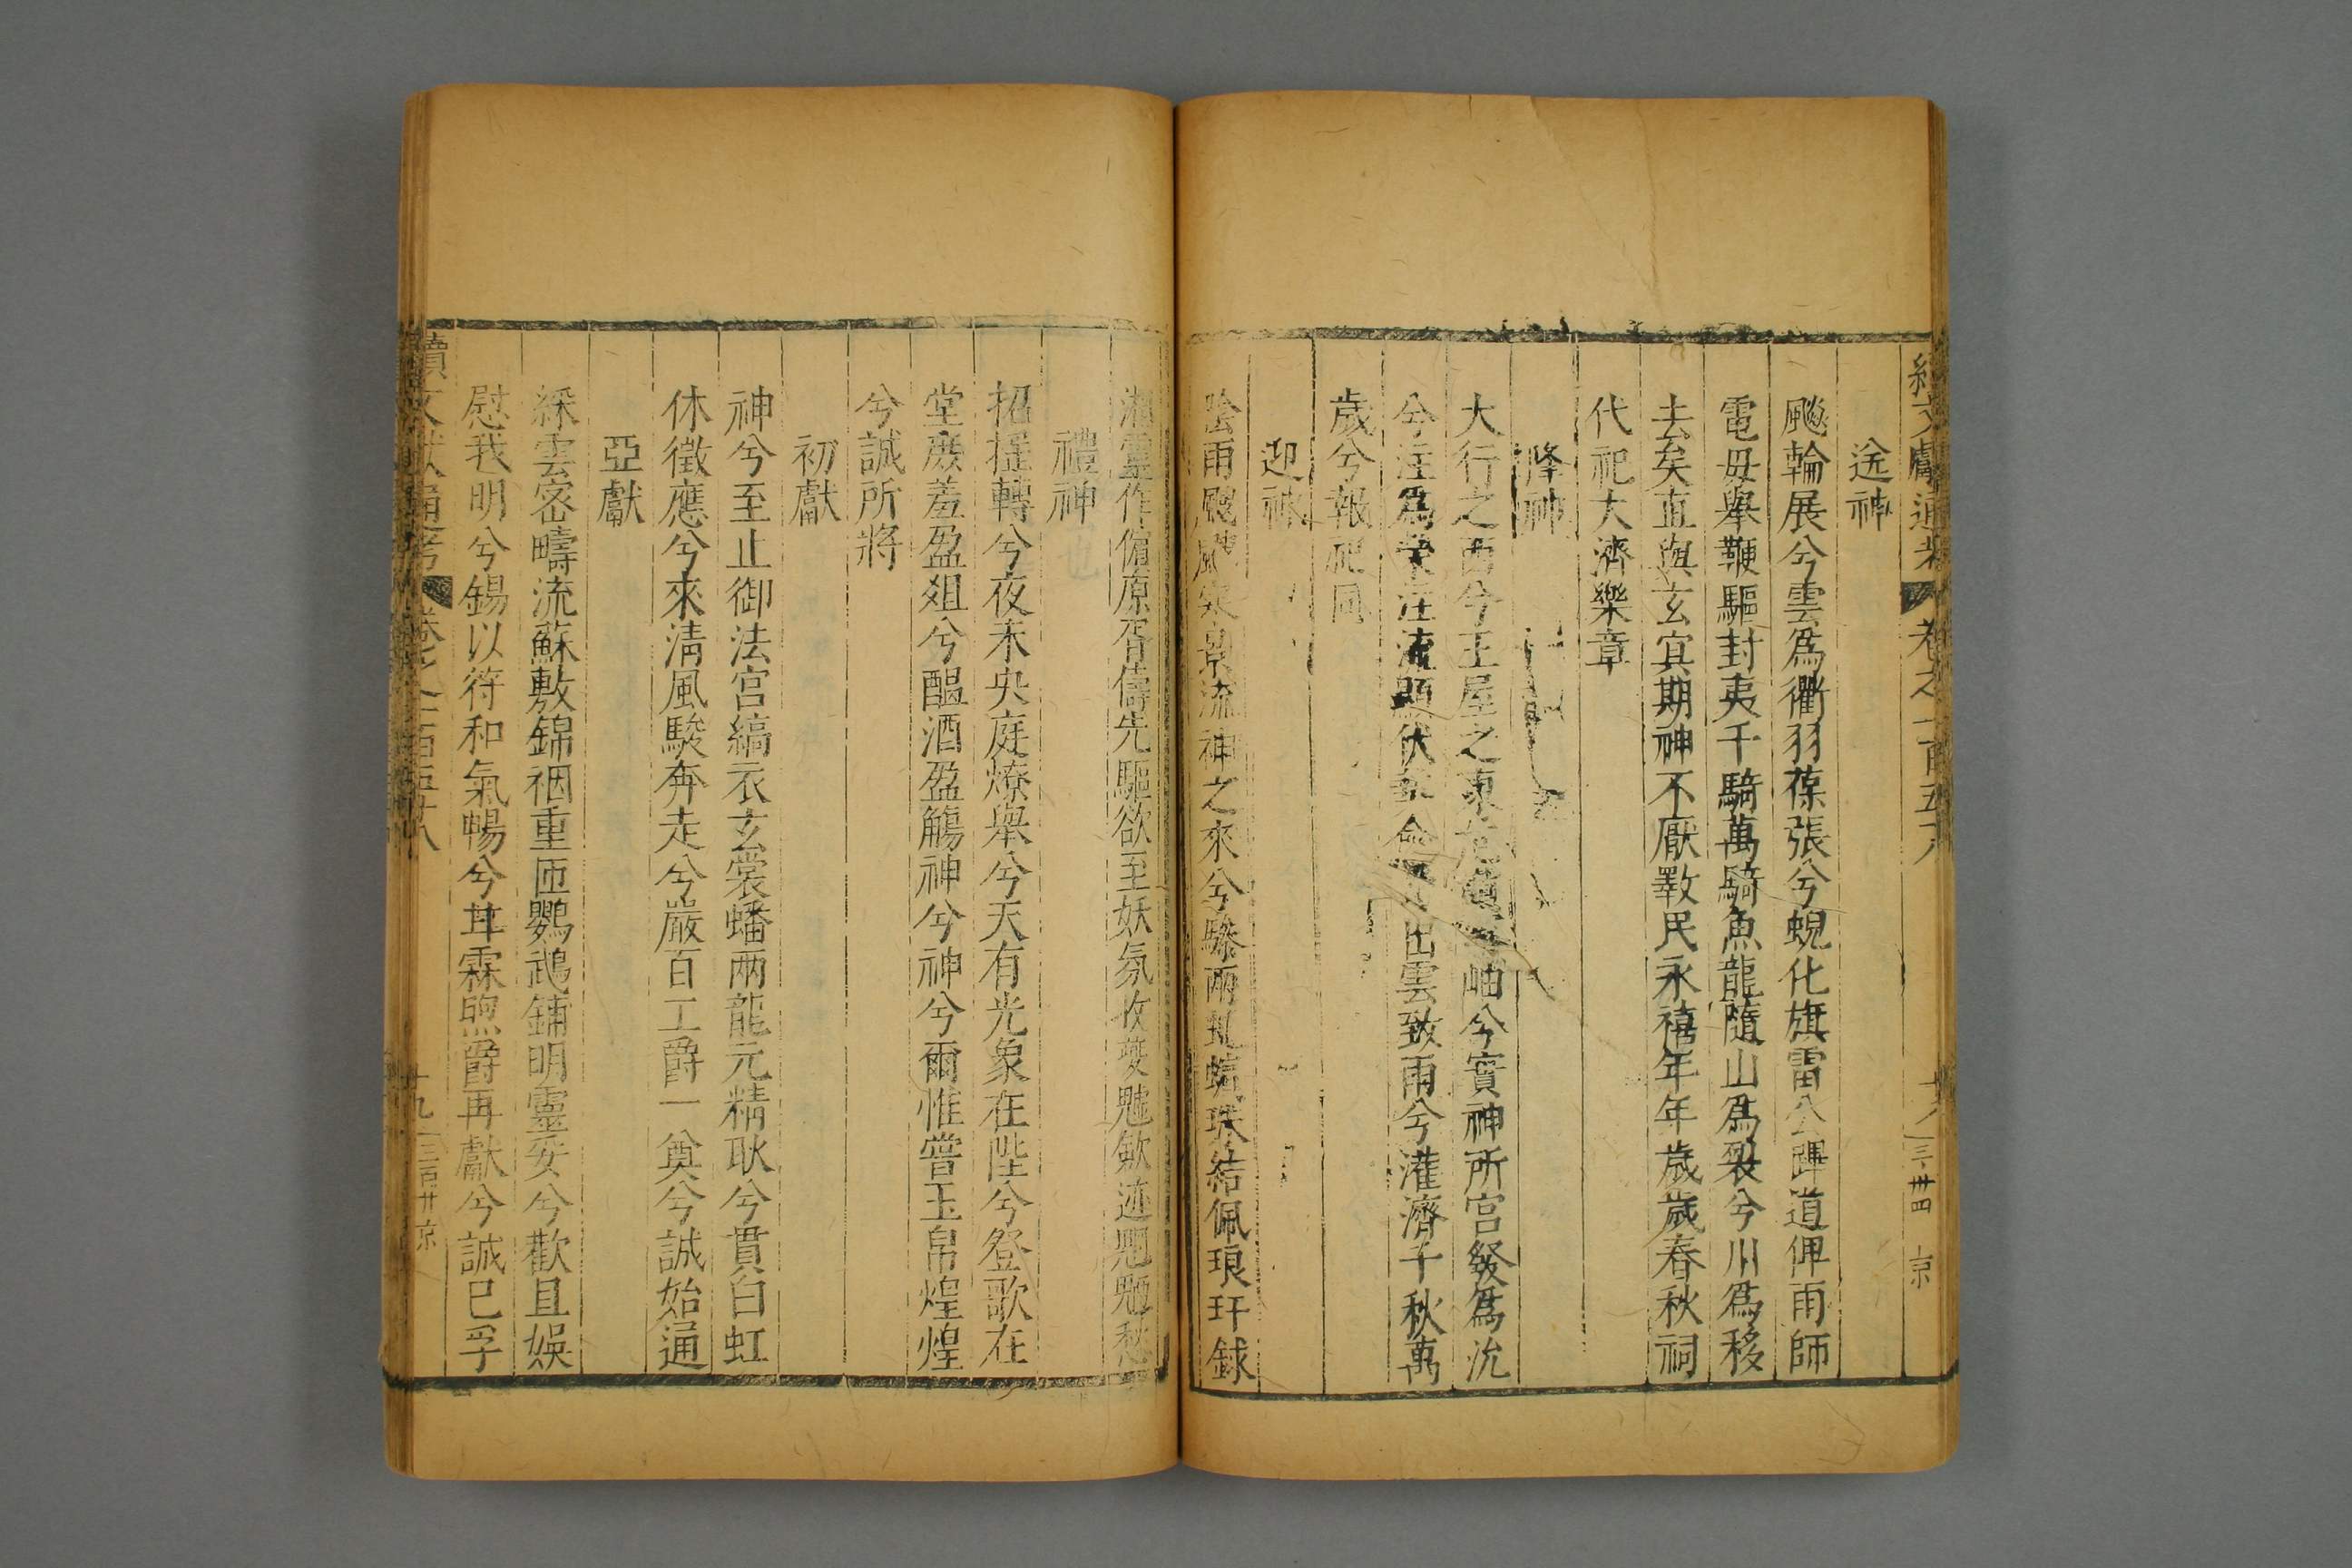 續文獻通考 卷之一百五八 十八 三卄四 京
送神
飈輪展兮雲爲衢羽葆張兮蜺化旗雷公蹕道俾雨師
電毋舉鞭驅封夷千騎萬騎魚龍隨山爲裂兮川爲移
去矣直與玄宜期神不厭斁民永禧年年歲歲春秋祠
代祀大濟樂章
降神
大行之西兮王屋之東 岫兮實神所宮發爲沇
兮注爲 注 伏 出雲致雨兮灌濟千秋萬
歲兮報祀同
迎神
陰雨 風 景流神之來兮驂兩虬 珠結佩琅玕錸
湘靈作儐原胥儔先驅欲至妖氛收 魖斂迹 愁
禮神
招搖轉兮夜未央庭燎舉兮天有光象在陛兮登歌在
堂庶羞盈盈爼兮醖酒盈觴神兮神兮爾惟嘗玉帛煌煌
兮誠所將
初獻
神兮至止御法宮縞衣玄裳蟠兩龍元精耿兮貫白虹
休徵應兮來清風駿奔走兮嚴百工爵一奠兮誠始通
亞獻
綵雲密疇流蘇敷錦裀重匝鸚鵡鋪明靈妥兮歡且娛
慰我明兮錫以符和氣暢兮甘霖煦爵再獻兮誠已孚
續文獻通考 卷之一百五十八 十九 三百卄 京